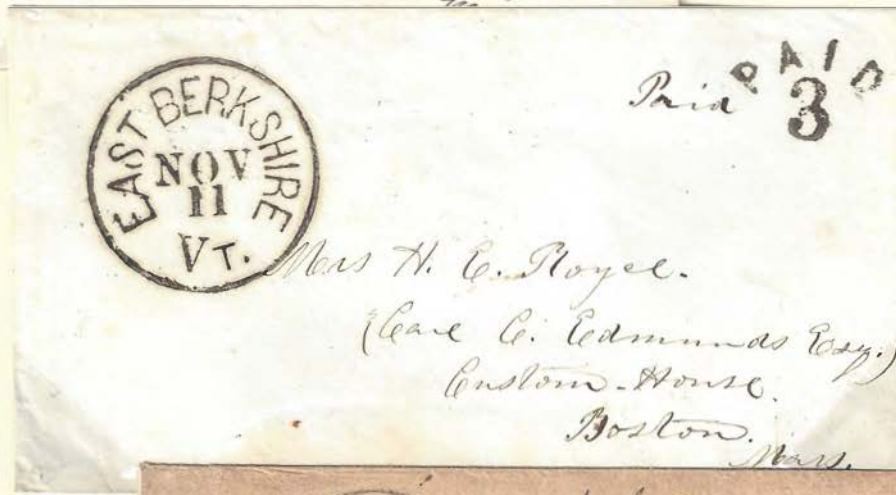 EAST BERKSHIRE
NOV
11
VT.
Paid
PAID
3
Mrs H. E. Royce.
(Care C. Edmunds Esq.)
Custom-House.
Boston.
Mass.